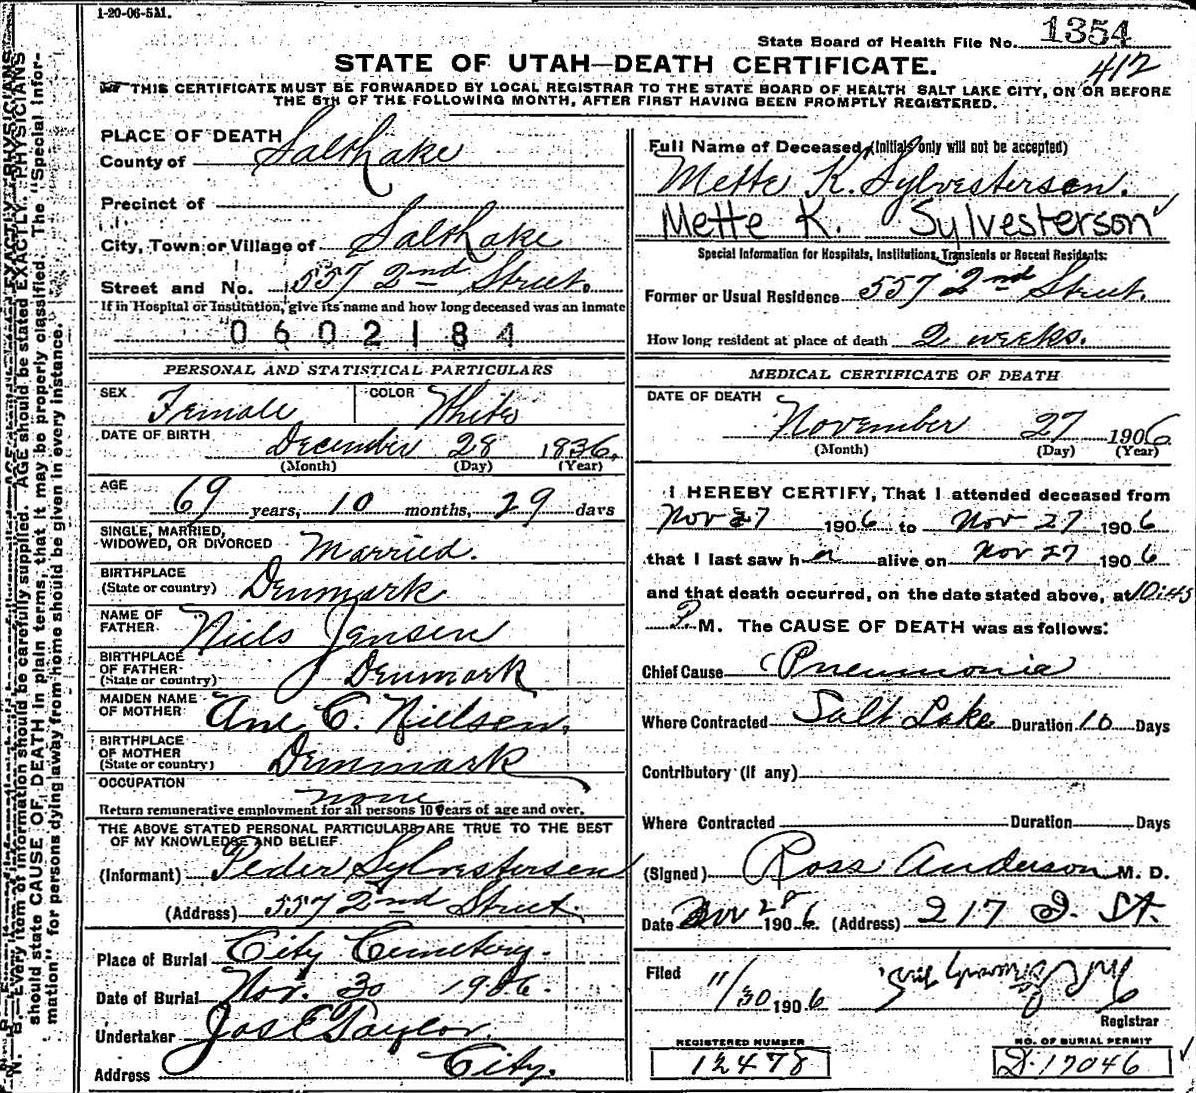 1-20-06-5M.
State Board of Health File No. 1354
412
STATE OF UTAH—DEATH CERTIFICATE.
THIS CERTIFICATE MUST BE FORWARDED BY LOCAL REGISTRAR TO THE STATE BOARD OF HEALTH SALT LAKE CITY, ON OR BEFORE
THE 5TH OF THE FOLLOWING MONTH, AFTER FIRST HAVING BEEN PROMPTLY REGISTERED.
PLACE OF DEATH
County of Salt Lake
Precinct of
City, Town or Village of Salt Lake
Street and No. 557 2nd Street.
If in Hospital or Institution, give its name and how long deceased was an inmate
0602184
PERSONAL AND STATISTICAL PARTICULARS
SEX Female COLOR White
DATE OF BIRTH December 28 1836.
(Month) (Day) (Year)
AGE 69 years, 10 months, 29 days
SINGLE, MARRIED,
WIDOWED, OR DIVORCED Married.
BIRTHPLACE
(State or country) Denmark
NAME OF
FATHER Niels Jensen
BIRTHPLACE
OF FATHER
(State or country) Denmark
MAIDEN NAME
OF MOTHER Ane C. Nielsen.
BIRTHPLACE
OF MOTHER
(State or country) Denmark
OCCUPATION none
Return remunerative employment for all persons 10 years of age and over.
THE ABOVE STATED PERSONAL PARTICULARS ARE TRUE TO THE BEST
OF MY KNOWLEDGE AND BELIEF
(Informant) Peder Sylvestersen
(Address) 557 2nd Street.
Place of Burial City Cemetery.
Date of Burial Nov. 30 1906.
Undertaker Jos E Taylor
Address City.
Full Name of Deceased (Initials only will not be accepted)
Mette K. Sylvestersen.
Mette K. Sylvesterson
Special Information for Hospitals, Institutions, Transients or Recent Residents:
Former or Usual Residence 557 2nd Street.
How long resident at place of death 2 weeks.
MEDICAL CERTIFICATE OF DEATH
DATE OF DEATH
November 27 1906
(Month) (Day) (Year)
I HEREBY CERTIFY, That I attended deceased from
Nov 27 1906 to Nov 27 1906
that I last saw her alive on Nov 27 1906
and that death occurred, on the date stated above, at 10:45
P. M. The CAUSE OF DEATH was as follows:
Chief Cause Pneumonia
Where Contracted Salt Lake Duration 10 Days
Contributory (if any)
Where Contracted Duration Days
(Signed) Ross Anderson M. D.
Date Nov 28 1906. (Address) 217 I. St.
Filed 11/30 1906
Registrar
REGISTERED NUMBER
12478
NO. OF BURIAL PERMIT
D.17046
N. B.—Every item of information should be carefully supplied. AGE should be stated EXACTLY. PHYSICIANS
should state CAUSE OF DEATH in plain terms, that it may be properly classified. The "Special Infor-
mation" for persons dying away from home should be given in every instance.